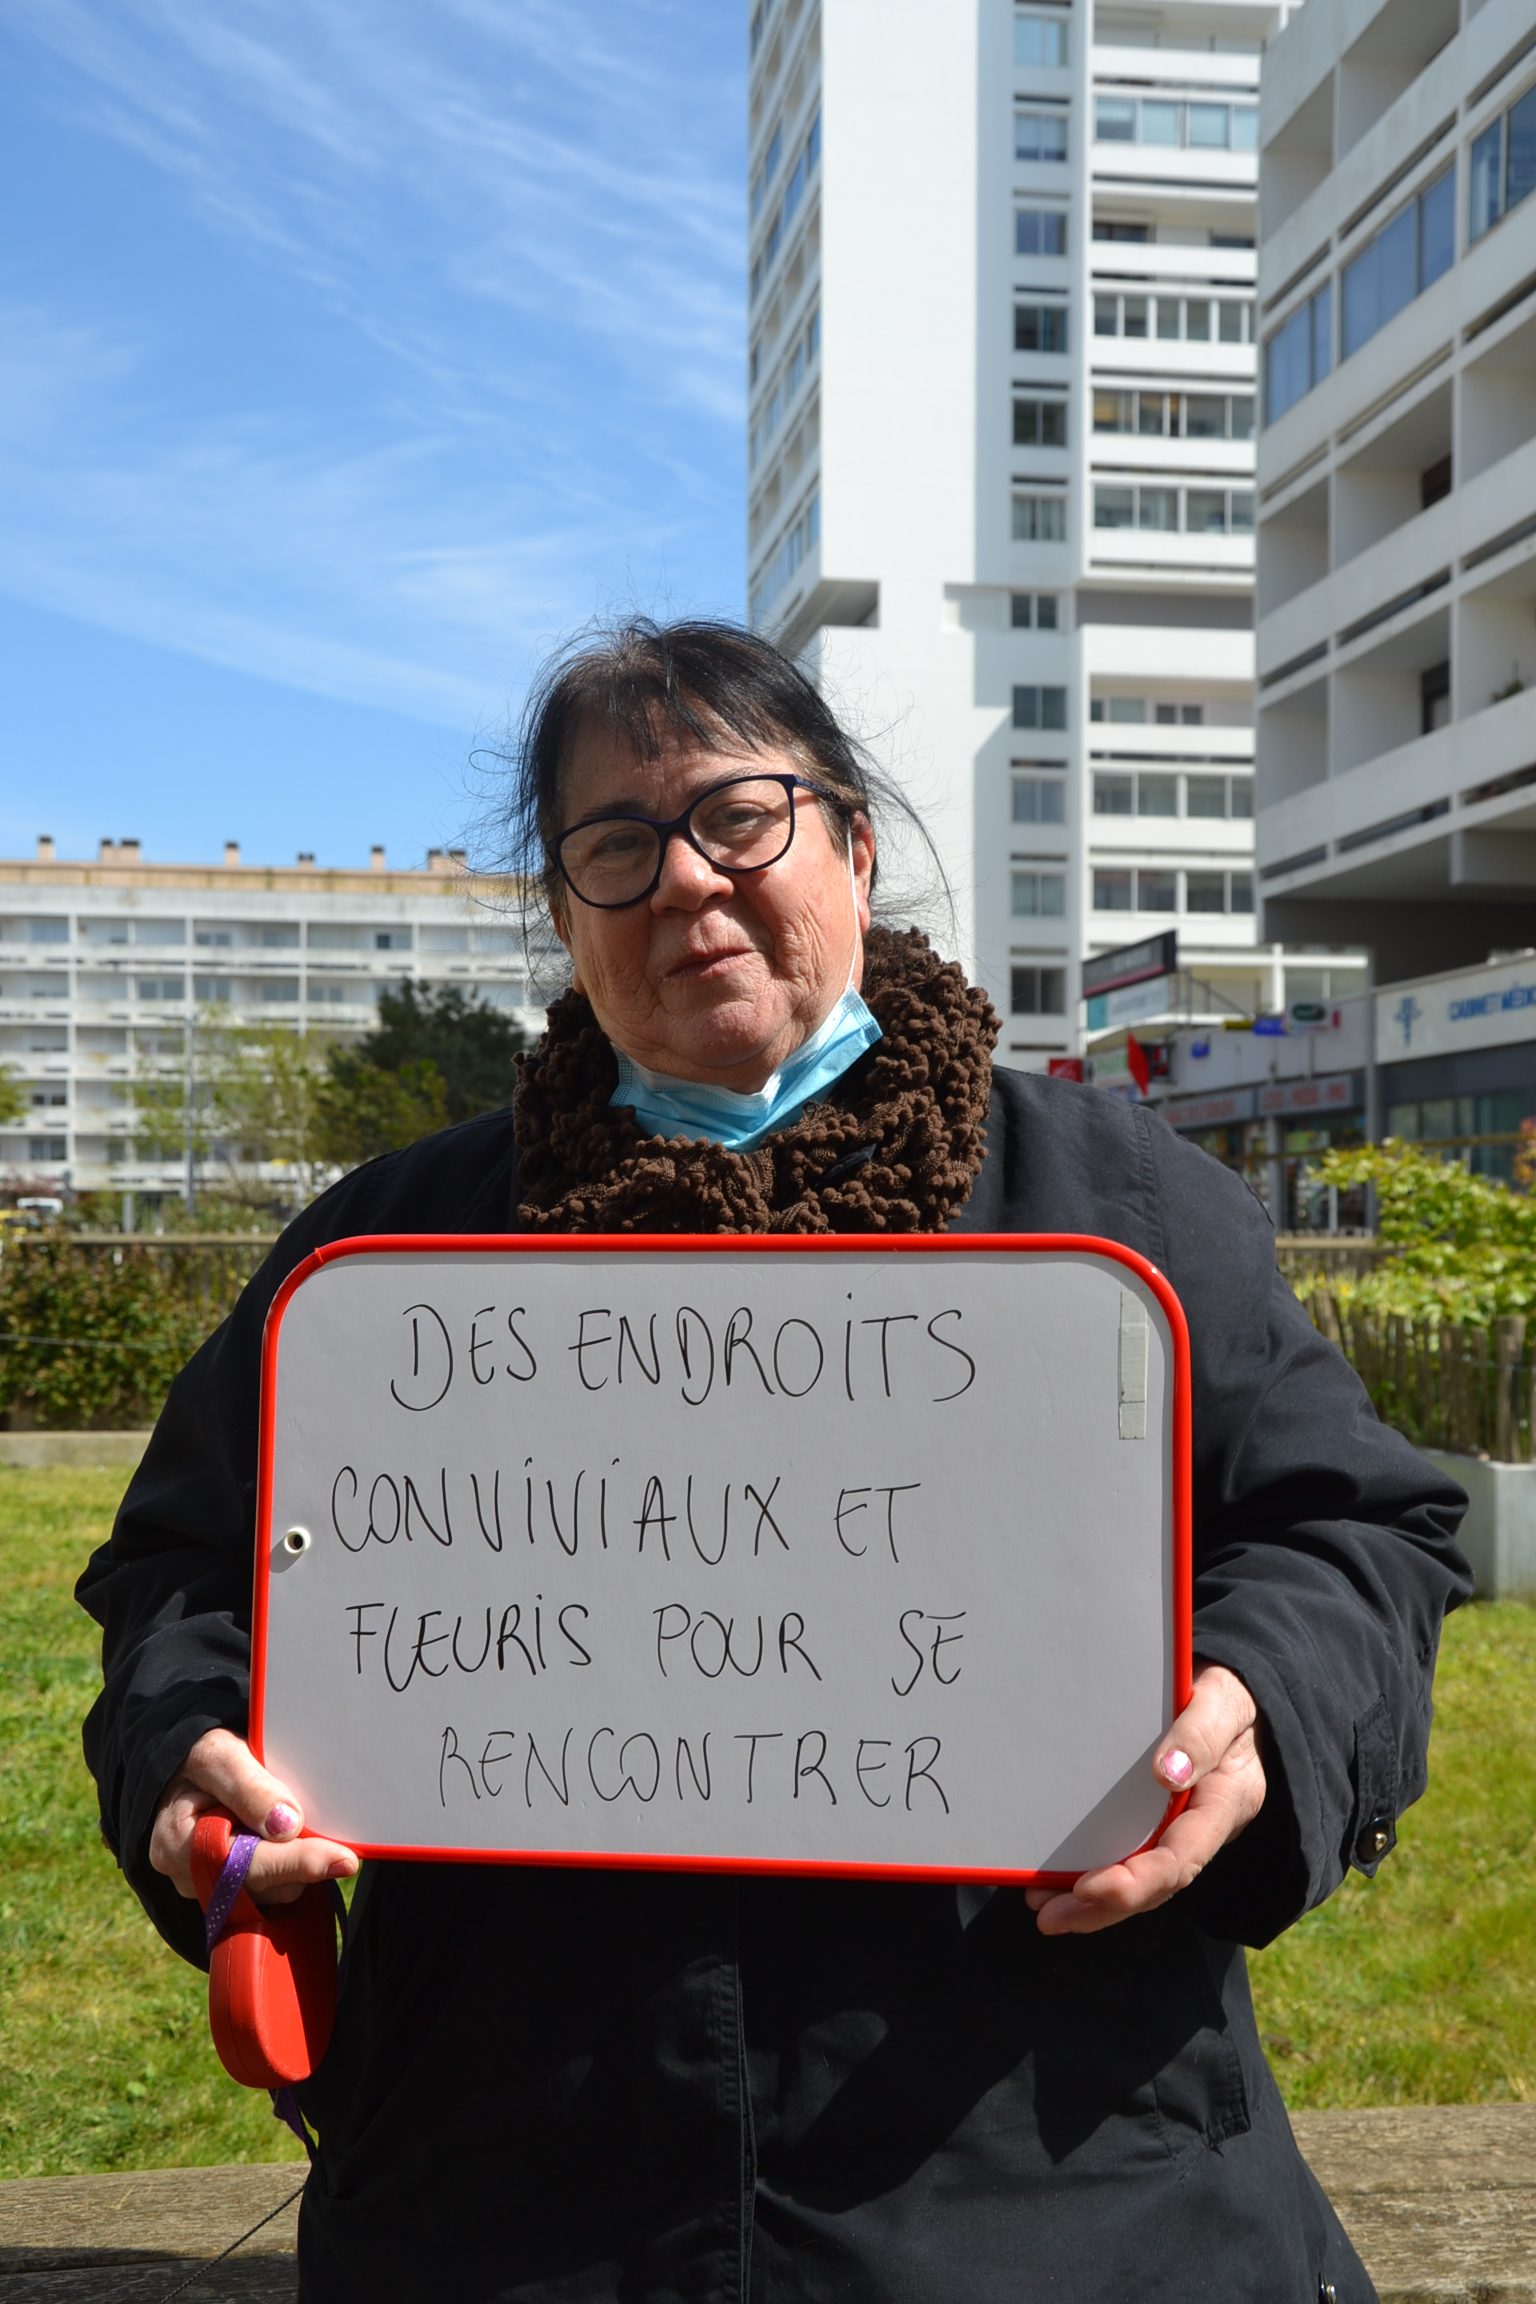 DES ENDROITS
CONVIVIAUX ET
FLEURIS POUR SE
RENCONTRER
CABINET MÉDIC